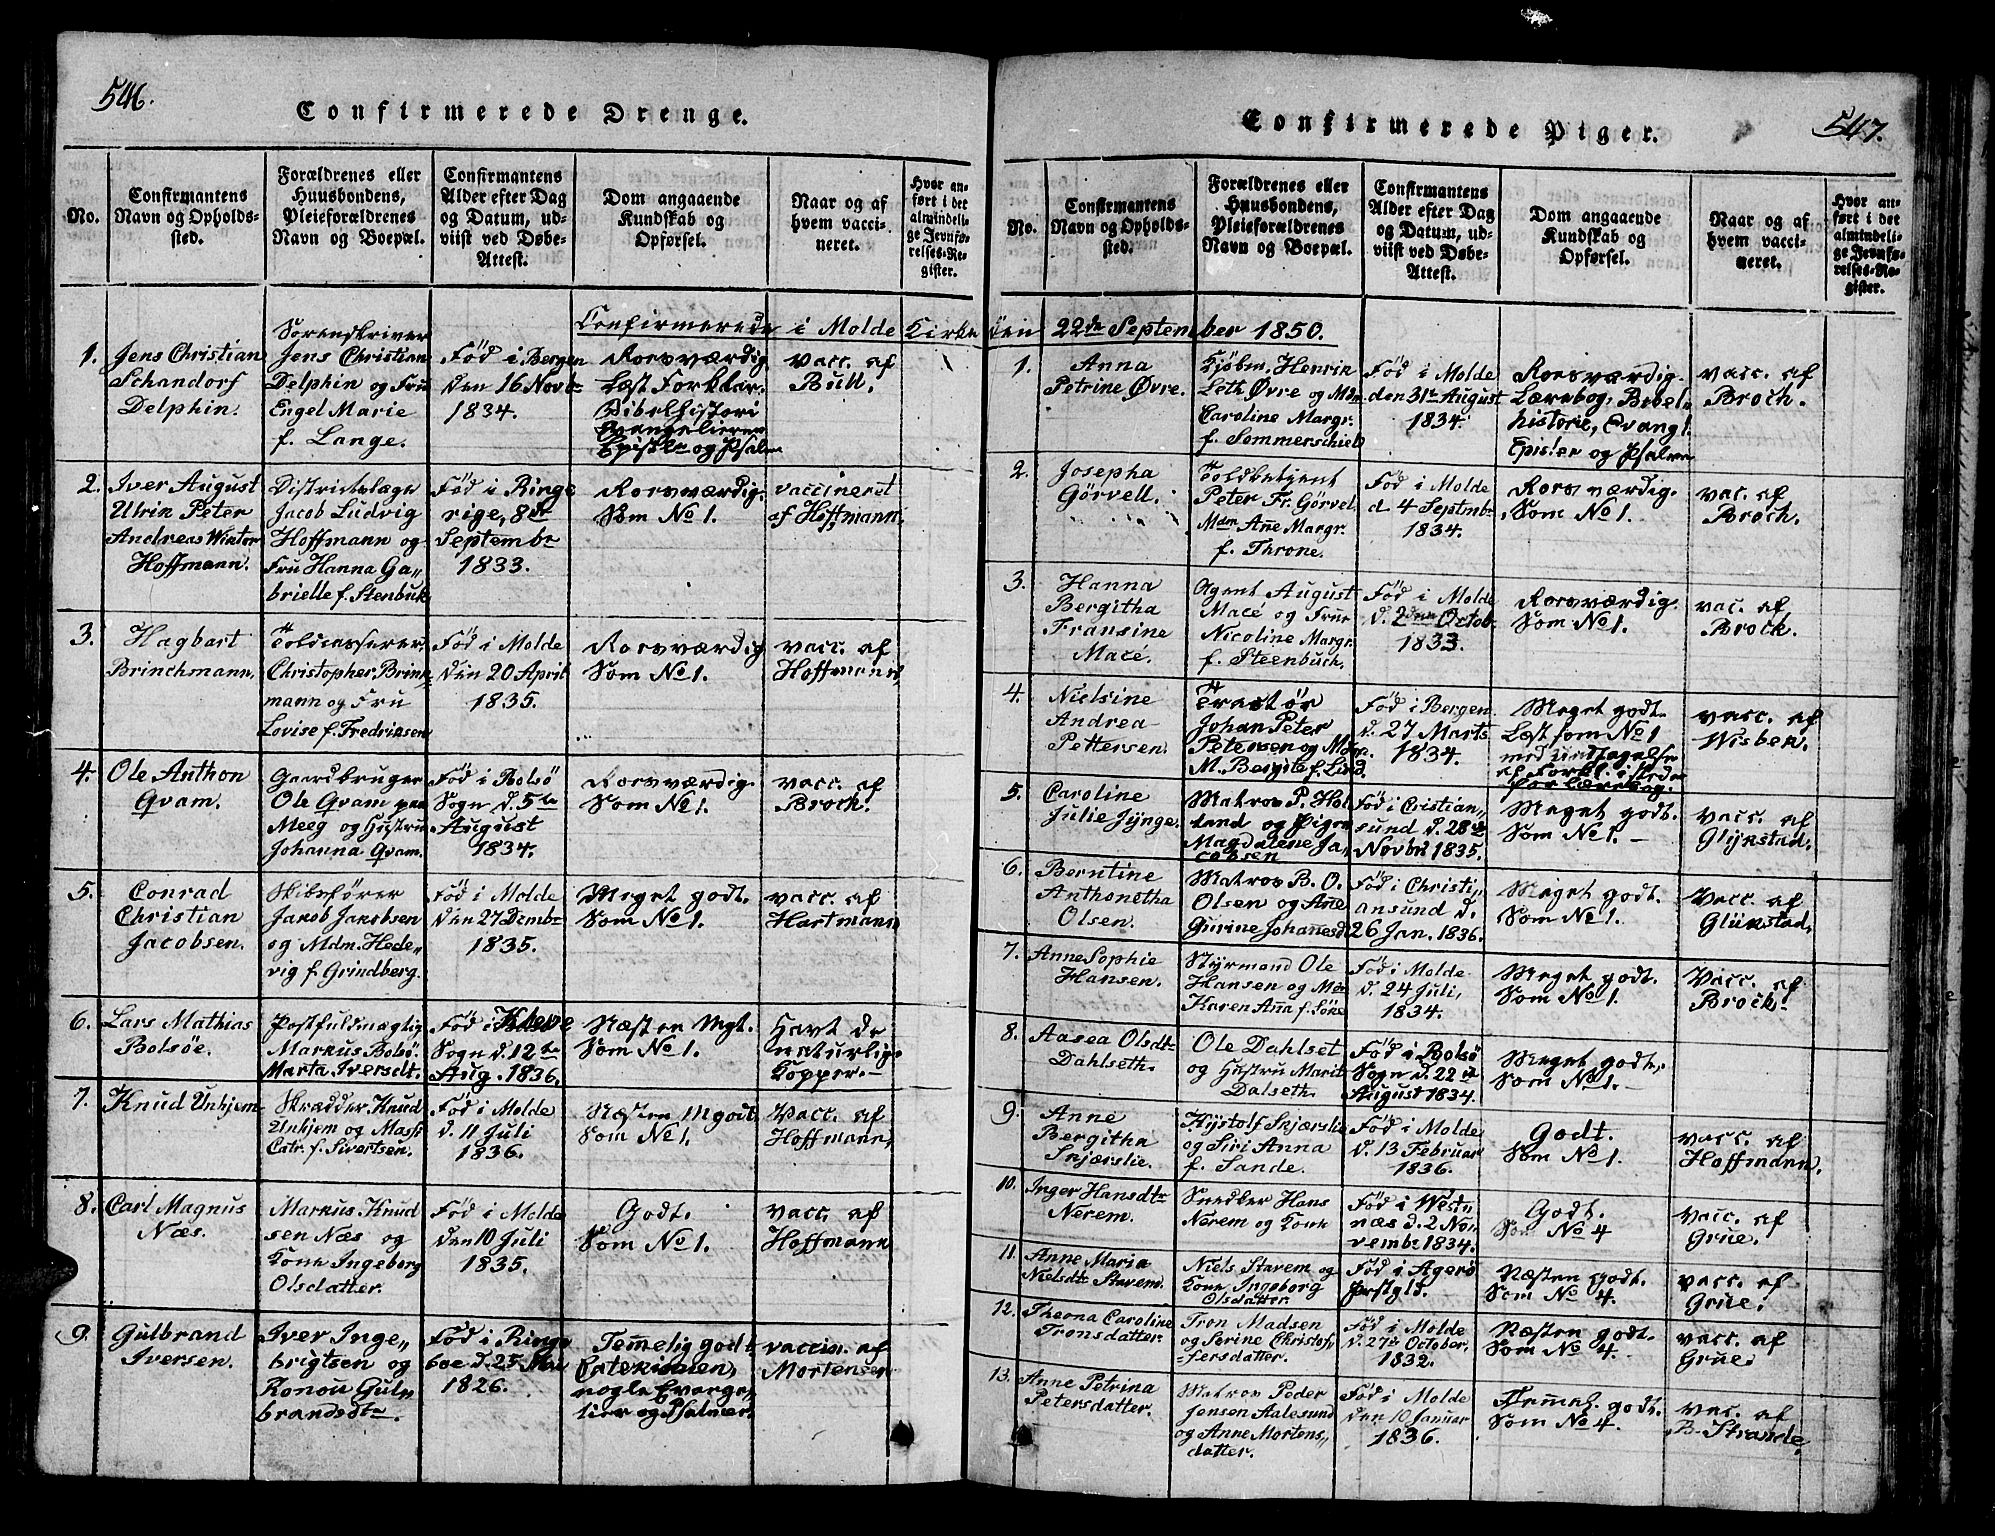 546.
Confirmerede Drenge.
No.
Confirmantens
Navn og Opholds-
sted.
Forældrenes eller
Huusbondens,
Pleieforældrenes
Navn og Boepæl.
Confirmantens
Alder efter Dag
og Datum, ud-
viist ved Døbe-
Attest.
Dom angaaende
Kundskab og
Opførsel.
Naar og af
hvem vacci-
neret.
Hvor an-
ført i det
almindeli-
ge Jevnfø-
relses-Re-
gister.
Confirmerede i Molde Kirke
1.
Jens Christian
Schandorf
Delphin.
Sorenskriver
Jens Christian
Delphin og Fru
Engel Marie
f. Lange.
Fød i Bergen
den 16 Novbr
1834.
Rosværdig
Læst Forklar.
Bibelhistori
Evangelierne
Epistler og Psalm
vacc. af
Bull.
2.
Iver August
Ulrik Peter
Andreas Winter
Hoffmann.
Districtslæge
Jacob Ludvig
Hoffmann og
Fru Hanna Ga„
brielle f. Stenbuk
Fød i Ringe
rige, 8de
Septembr
1833.
Rosværdig.
Som No 1.
vaccineret
af Hoffmann.
3.
Hagbart
Brinchmann.
Toldcasserer
Christopher Brink
mann og Fru
Lovise f. Fredriksen
Fød i Molde
den 20 April
1835.
Rosværdig
Som No 1.
vacc. af
Hoffmann.
4.
Ole Anthon
Qvam.
Gaardbruger
Ole Qvam paa
Meeg og Hustru
Johanna Qvam.
Fød i Bolsö
Sogn d. 5te
August
1834.
Rosværdig.
Som No 1.
vacc. af
Brock.
5.
Conrad
Christian
Jacobsen.
Skibsfører
Jakob Jakobsen
og Mdm. Hede„
vig f. Grindberg.
Fød i Molde
den 27 Dembr
1835.
Meget godt.
Som No 1.
vacc. af
Hartmann
6.
Lars Mathias
Bolsöe.
Postfuldmægtig
Markus Bolsö.
Marta Iversdt.
Fød i Kleve
Sogn d. 12te
Aug. 1836.
Næsten Mgt.
Som No 1.
Havt de
naturlig.
Kopper.
7.
Knud Unhjem
Skrædder Knud
Unhjem og Mass
Catr. f. Sivertsen.
Fød i Molde
d. 11 Juli
1836.
Næsten M godt
Som No 1.
Vacc. af
Hoffmann,
8.
Carl Magnus
Næs.
Markus Knud
sen Næs og
Kone Ingeborg
Olsdatter.
Fød i Molde
den 10 Juli
1835.
Godt.
Som No 1.
vacc. af
Hoffmann
9.
Gulbrand
Iversen.
Iver Inge„
brigtsen og
Ronou Gul„
brandsdtr.
Fød i Ringe
boe d. 25 Mai
1826.
Temelig godt
Catekismen,
nogle Evange„
lier og Psalmer.
vaccin. af
Mortensen
547.
Confirmerede Piger.
No.
Confirmantens
Navn og Opholds-
sted.
Forældrenes eller
Huusbondens,
Pleieforældrenes
Navn og Boepæl.
Confirmantens
Alder efter Dag
og Datum, ud-
viist ved Døbe-
Attest.
Dom angaaende
Kundskab og
Opførsel.
Naar og af
hvem vacci-
neret.
Hvor an-
ført i det
almindeli-
ge Jevnfø-
relses-Re-
gister.
den 22de September 1850.
1.
Anna
Petrine Øvre.
Kjöbm. Henrik
Leth Øvre og Mdm
Caroline Margr.
f. Sommerschield
Fød i Molde
den 31te August
1834.
Rosværdig.
Lærebog, Bibel„
historie, Evangl.
Epistler og Psalmer
vacc. af
Broch.
2.
Josepha
Görvell.
Toldbetjent
Peter Fr. Görvel
Mdm Ane Margr.
f. Throne.
Fød i Molde
d 4 Septmbr
1834.
Rosværdig.
Som No 1.
vac. af
Broch.
3.
Hanna
Bergitha
Fransine
Macé.
Agent August
Macé og Frue
Nicoline Margr.
f. Steenbuch.
Fød i Molde
d. 2den Octob.
1833.
Rosværdig.
Som No 1.
vac. af
Brock.
4.
Nielsine
Andrea
Pettersen.
Johan Peter
Petersen og Mdm.
M. Bergite f. Lind.
Fød i Bergen
d. 27 Marts
1834.
Meget godt.
Læst som No 1
med undtagelse
af Forkl. i steden
for Lærebog.
vacc. af
Wisben.
5.
Caroline
Julie Jynge.
Matros P. Hol
land og Pigen
Magdalene Ja„
cobsen
Fød i Cristian„
sund d. 28de
Novbr 1835.
Meget godt.
Som No 1.
vacc. af
Glynstad.
6.
Berntine
Anthonetha
Olsen.
Matros B. O.
Olsen og Ane
Gurine Johanesd
Fød i Christi„
ansund d.
26 Jan. 1836.
Meget godt.
Som No 1.
Vacc. af
Glünstad.
7.
Anne Sophie
Hansen.
Styrmand Ole
Hansen og Mdm
Karen Ana f.
Fød i Molde
d. 24 Juli,
1834.
Meget godt.
Som No 1.
Vacc. af
Brock.
8.
Aasea Olsdtr
Dahlseth.
Ole Dahlset
og Hustru Marit
Dalseth.
Fød i Bolsö
Sogn d. 22de
August 1834.
Meget godt,
Som No 1.
9.
Anne
Bergitha
Skjærslie.
Kystolf Skjærslie
og Siri Anna
f. Sande.
Fød i Molde
d. 13 Februar
1836.
Godt.
Som No 1.
vacc. af
Hoffmann.
10.
Inger Hansdtr
Nerem.
Snedker Hans
Nerem og Kone
Fød i West„
næs d. 2 No„
vembr 1834.
Godt.
Som No 4
vacc. af
Grue.
11.
Anne Maria
Nielsdtr Stavem.
Niels Stavem og
Kone Ingeborg
Olsdatter.
Fød i Agerö
Præstgt.
Næsten godt.
Som No 4.
vacc. af
Grue.
12.
Theona Caroline
Tronsdatter.
Tron Madsen
og Serine Christof„
fersdatter.
Fød i Molde
d. 27de October,
1832.
Næsten godt.
Som No 4.
vacc. af
Grue.
13.
Anne Petrina
Petersdatter.
Matros Peder
Jensen Aalesund
og Anne Mortens„
datter.
Fød i Molde
den 10 Januar
1836.
Temel. godt.
Som No 4.
vac. af
B. Strande